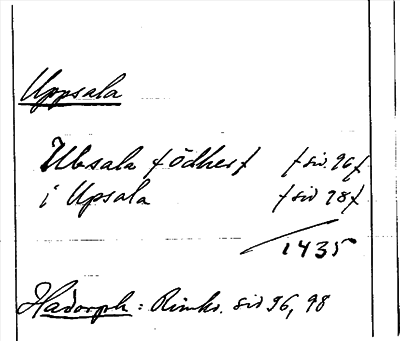 Uppsala
Ubsala födhes (sid. 96)
i Upsala (sid 98)
1435
Hadorph: Rimkr. sid 96, 98